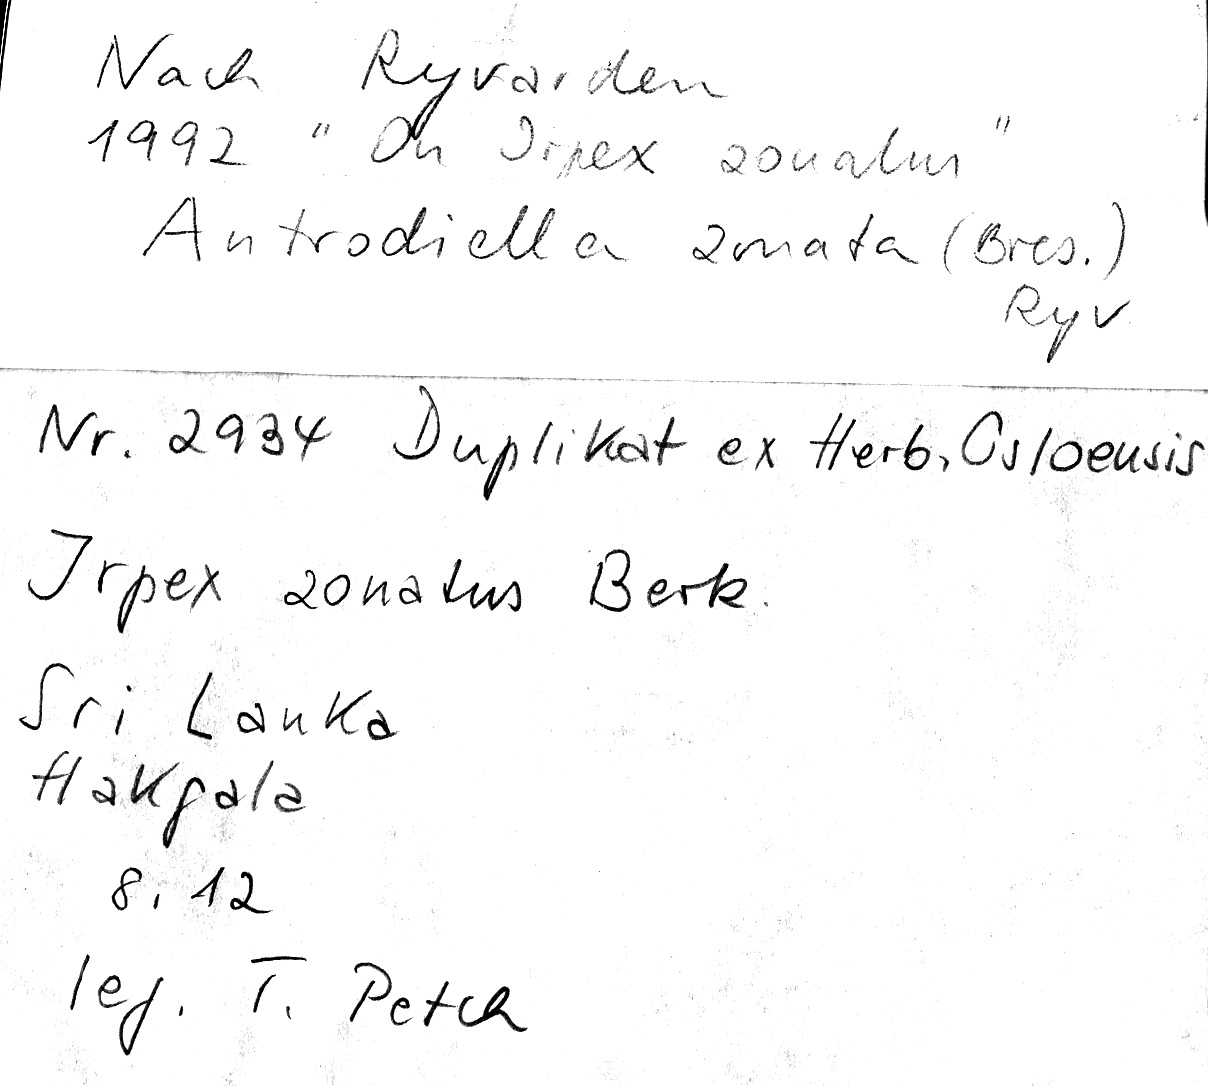 Nach Ryvarden
1992 "On Irpex zonatus"
Antrodiella zonata (Bres.)
Ryv
Nr. 2934 Duplikat ex Herb. Osloensis
Irpex zonatus Berk.
Sri Lanka
Hakgala
8. 12
leg. T. Petch